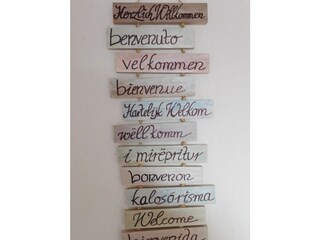 Herzlich Willkommen
benvenuto
velkommen
bienvenue
Hartelijk Welkom
wëllkomm
i mirëpritur
bonvenon
kalosórisma
Welcome
bienvenida